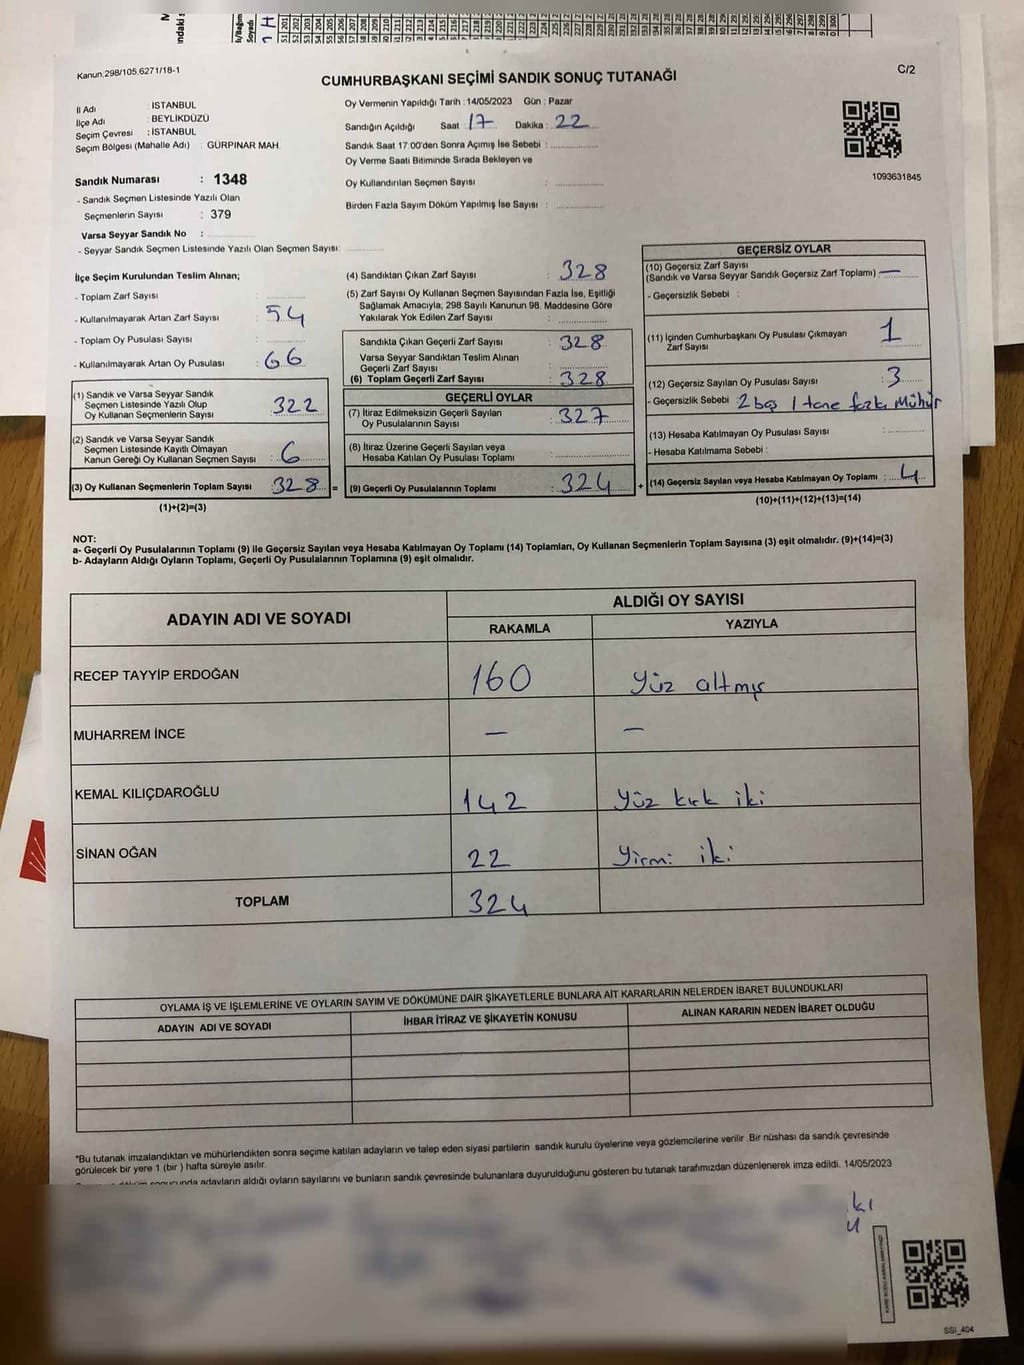 Kanun,298/105,6271/18-1
C/2
CUMHURBAŞKANI SEÇİMİ SANDIK SONUÇ TUTANAĞI
İl Adı : İSTANBUL
İlçe Adı : BEYLİKDÜZÜ
Seçim Çevresi : İSTANBUL
Seçim Bölgesi (Mahalle Adı) : GÜRPINAR MAH.
Oy Vermenin Yapıldığı Tarih : 14/05/2023 Gün : Pazar
Sandığın Açıldığı Saat 17 Dakika : 22
Sandık Saat 17:00'den Sonra Açımış İse Sebebi :
Oy Verme Saati Bitiminde Sırada Bekleyen ve
Oy Kullandırılan Seçmen Sayısı :
Birden Fazla Sayım Döküm Yapılmış İse Sayısı :
1093631845
Sandık Numarası : 1348
- Sandık Seçmen Listesinde Yazılı Olan
Seçmenlerin Sayısı : 379
Varsa Seyyar Sandık No :
- Seyyar Sandık Seçmen Listesinde Yazılı Olan Seçmen Sayısı:
İlçe Seçim Kurulundan Teslim Alınan;
- Toplam Zarf Sayısı :
- Kullanılmayarak Artan Zarf Sayısı : 54
- Toplam Oy Pusulası Sayısı :
- Kullanılmayarak Artan Oy Pusulası : 66
(1) Sandık ve Varsa Seyyar Sandık
Seçmen Listesinde Yazılı Olup
Oy Kullanan Seçmenlerin Sayısı : 322
(2) Sandık ve Varsa Seyyar Sandık
Seçmen Listesinde Kayıtlı Olmayan
Kanun Gereği Oy Kullanan Seçmen Sayısı : 6
(3) Oy Kullanan Seçmenlerin Toplam Sayısı : 328 =
(1)+(2)=(3)
(4) Sandıktan Çıkan Zarf Sayısı : 328
(5) Zarf Sayısı Oy Kullanan Seçmen Sayısından Fazla İse, Eşitliği
Sağlamak Amacıyla; 298 Sayılı Kanunun 98. Maddesine Göre
Yakılarak Yok Edilen Zarf Sayısı :
Sandıkta Çıkan Geçerli Zarf Sayısı : 328
Varsa Seyyar Sandıktan Teslim Alınan
Geçerli Zarf Sayısı :
(6) Toplam Geçerli Zarf Sayısı : 328
GEÇERLİ OYLAR
(7) İtiraz Edilmeksizin Geçerli Sayılan
Oy Pusulalarının Sayısı : 327
(8) İtiraz Üzerine Geçerli Sayılan veya
Hesaba Katılan Oy Pusulası Toplamı :
(9) Geçerli Oy Pusulalarının Toplamı : 324 +
GEÇERSİZ OYLAR
(10) Geçersiz Zarf Sayısı
(Sandık ve Varsa Seyyar Sandık Geçersiz Zarf Toplamı) : —
- Geçersizlik Sebebi :
(11) İçinden Cumhurbaşkanı Oy Pusulası Çıkmayan
Zarf Sayısı : 1
(12) Geçersiz Sayılan Oy Pusulası Sayısı : 3
- Geçersizlik Sebebi : 2 boş 1 tane fazla Mühür
(13) Hesaba Katılmayan Oy Pusulası Sayısı :
- Hesaba Katılmama Sebebi :
(14) Geçersiz Sayılan veya Hesaba Katılmayan Oy Toplamı : 4
(10)+(11)+(12)+(13)=(14)
NOT:
a- Geçerli Oy Pusulalarının Toplamı (9) ile Geçersiz Sayılan veya Hesaba Katılmayan Oy Toplamı (14) Toplamları, Oy Kullanan Seçmenlerin Toplam Sayısına (3) eşit olmalıdır. (9)+(14)=(3)
b- Adayların Aldığı Oyların Toplamı, Geçerli Oy Pusulalarının Toplamına (9) eşit olmalıdır.
ADAYIN ADI VE SOYADI
ALDIĞI OY SAYISI
RAKAMLA YAZIYLA
RECEP TAYYİP ERDOĞAN 160 yüz altmış
MUHARREM İNCE — —
KEMAL KILIÇDAROĞLU 142 yüz kırk iki
SİNAN OĞAN 22 yirmi iki
TOPLAM 324
OYLAMA İŞ VE İŞLEMLERİNE VE OYLARIN SAYIM VE DÖKÜMÜNE DAİR ŞİKAYETLERLE BUNLARA AİT KARARLARIN NELERDEN İBARET BULUNDUKLARI
ADAYIN ADI VE SOYADI İHBAR İTİRAZ VE ŞİKAYETİN KONUSU ALINAN KARARIN NEDEN İBARET OLDUĞU
*Bu tutanak imzalandıktan ve mühürlendikten sonra seçime katılan adayların ve talep eden siyasi partilerin sandık kurulu üyelerine veya gözlemcilerine verilir .Bir nüshası da sandık çevresinde
görülecek bir yere 1 (bir ) hafta süreyle asılır.
sonucunda adayların aldığı oyların sayılarını ve bunların sandık çevresinde bulunanlara duyurulduğunu gösteren bu tutanak tarafımızdan düzenlenerek imza edildi. 14/05/2023
SSI_404